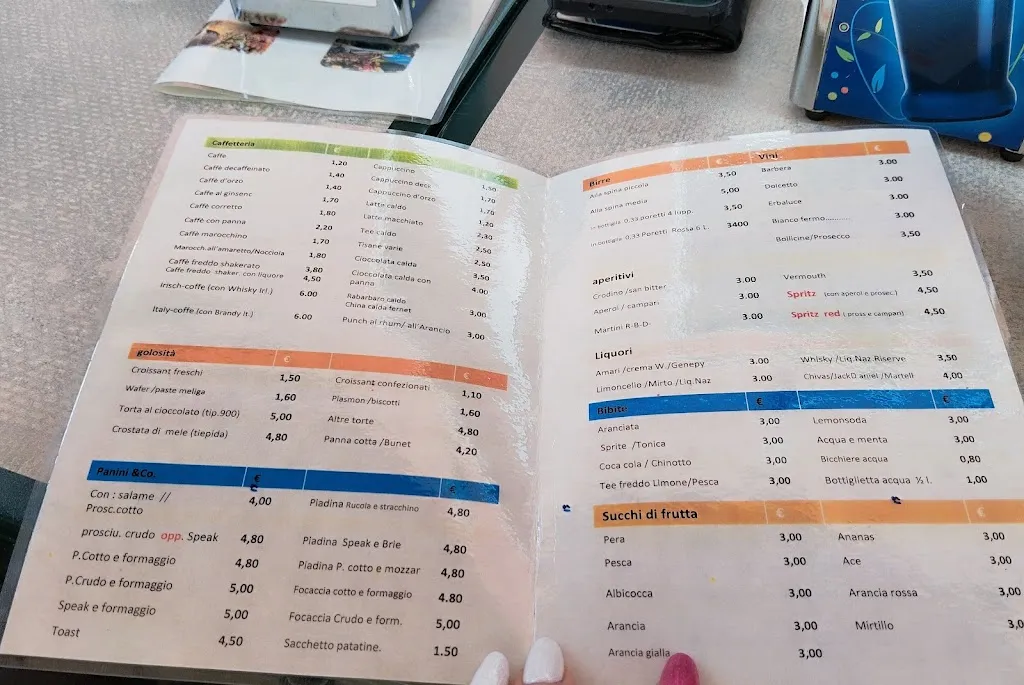 Caffetteria €
Caffe 1,20
Caffè decaffeinato 1,40
Caffè d'orzo 1,40
Caffe al ginsenc 1,70
Caffè corretto 1,80
Caffè con panna 2,20
Caffè marocchino 1,70
Marocch.all'amaretto/Nocciola 1,80
Caffè freddo shakerato 3,80
Caffè freddo shaker. con liquore 4,50
Irisch-coffe (con Whisky Irl.) 6.00
Italy-coffe (con Brandy It.) 6.00
Cappuccino 1,50
Cappuccino deck 1,70
Cappuccino d'orzo 1,70
Latte caldo 1,20
Latte macchiato 2,30
Tee caldo 2,50
Tisane varie 2,50
Cioccolata calda 3,50
Cioccolata calda con
panna 4.00
Rabarbaro caldo
China calda fernet 3,00
Punch al rhum/ all'Arancio 3,00
golosità €
Croissant freschi 1,50
Wafer /paste meliga 1,60
Torta al cioccolato (tip.900) 5,00
Crostata di mele (tiepida) 4,80
€
Croissant confezionati 1,10
Plasmon /biscotti 1,60
Altre torte 4,80
Panna cotta /Bunet 4,20
Panini &Co. €
Con : salame //
Prosc.cotto 4,00
prosciu. crudo opp. Speak 4,80
P.Cotto e formaggio 4,80
P.Crudo e formaggio 5,00
Speak e formaggio 5,00
Toast 4,50
€
Piadina Rucola e stracchino 4,80
Piadina Speak e Brie 4,80
Piadina P. cotto e mozzar 4,80
Focaccia cotto e formaggio 4.80
Focaccia Crudo e form. 5,00
Sacchetto patatine. 1.50
Birre €
Alla spina piccola 3,50
Alla spina media 5,00
In bottiglia 0,33 poretti 4 lupp. 3,50
In bottiglia 0,33 Poretti Rossa 6 L. 3400
Vini €
Barbera 3.00
Dolcetto 3.00
Erbaluce 3.00
Bianco fermo........... 3.00
Bollicine/Prosecco 3,50
aperitivi
Crodino /san bitter 3.00
Aperol / campari 3.00
Martini R-B-D- 3.00
Vermouth 3,50
Spritz (con aperol e prosec.) 4,50
Spritz red ( pross e campari) 4,50
Liquori
Amari /crema W./Genepy 3.00
Limoncello /Mirto /Liq.Naz 3.00
Whisky /Liq.Naz.Riserve 3,50
Chivas/JackDaniel /Martell 4,00
Bibite €
Aranciata 3,00
Sprite /Tonica 3,00
Coca cola / Chinotto 3,00
Tee freddo Limone/Pesca 3,00
€
Lemonsoda 3,00
Acqua e menta 3,00
Bicchiere acqua 0,80
Bottiglietta acqua ½ l. 1,00
Succhi di frutta €
Pera 3,00
Pesca 3,00
Albicocca 3,00
Arancia 3,00
Arancia gialla 3,00
€
Ananas 3,00
Ace 3,00
Arancia rossa 3,00
Mirtillo 3,0